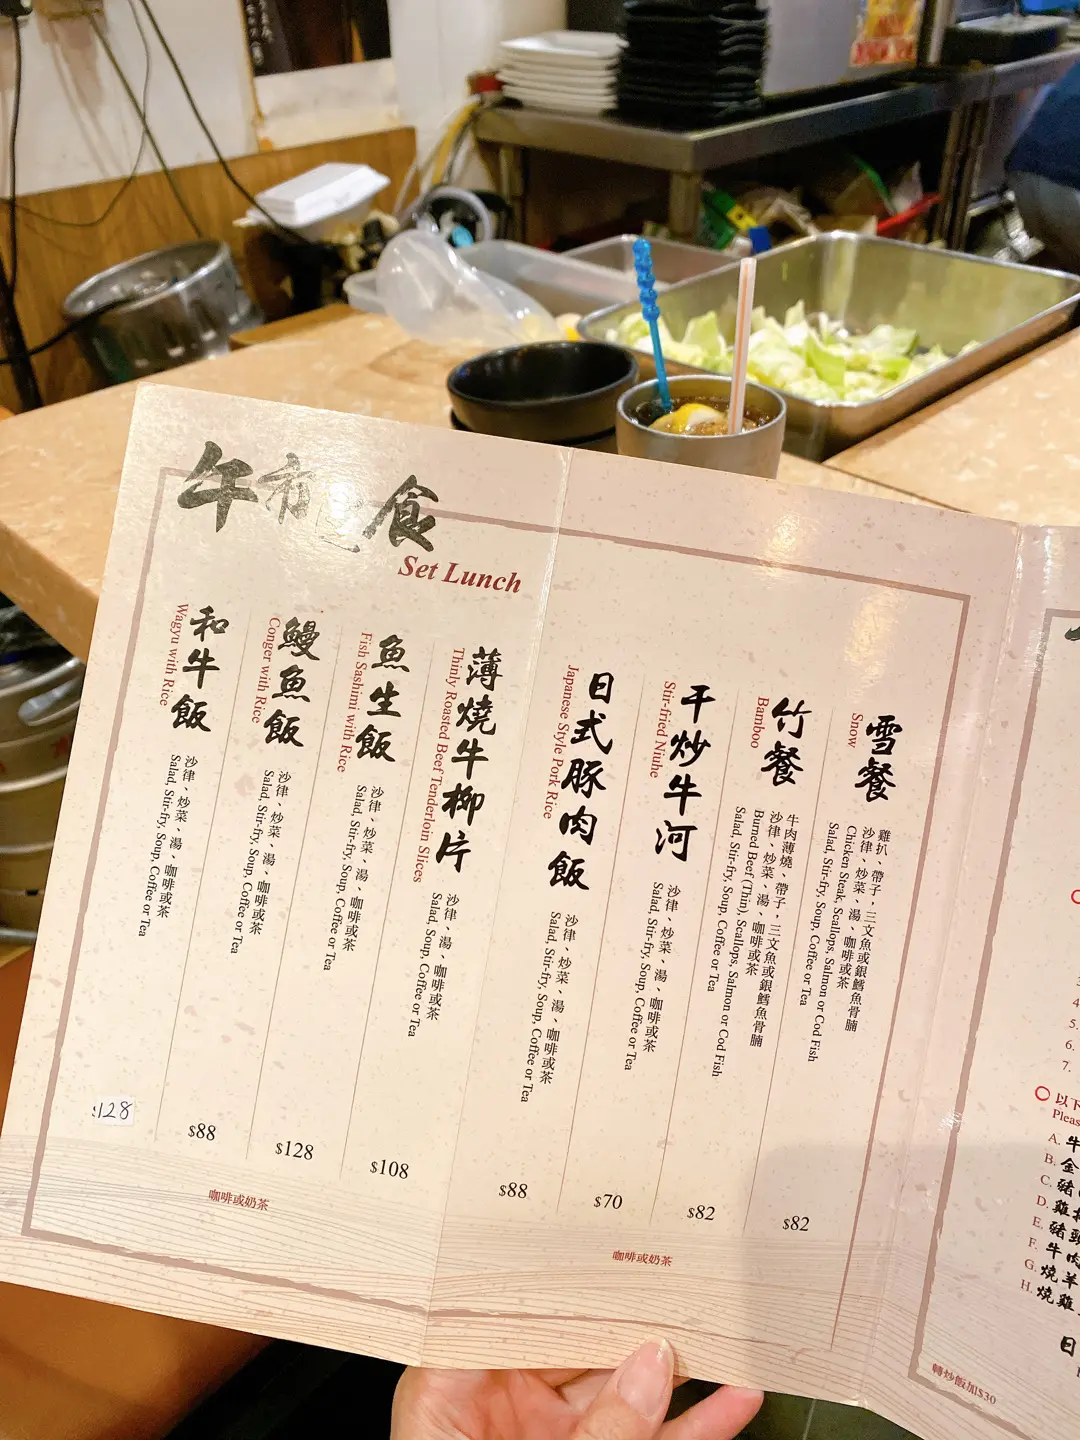 午市定食
Set Lunch
雪餐
Snow
雞扒、帶子，三文魚或銀鱈魚骨腩
沙律、炒菜、湯、咖啡或茶
Chicken Steak, Scallops, Salmon or Cod Fish
Salad, Stir-fry, Soup, Coffee or Tea
$82
竹餐
Bamboo
牛肉薄燒，帶子，三文魚或銀鱈魚骨腩
沙律、炒菜、湯、咖啡或茶
Burned Beef (Thin), Scallops, Salmon or Cod Fish
Salad, Stir-fry, Soup, Coffee or Tea
$82
干炒牛河
Stir-fried Niuhe
沙律、炒菜、湯、咖啡或茶
Salad, Stir-fry, Soup, Coffee or Tea
$70
日式豚肉飯
Japanese Style Pork Rice
沙律、炒菜、湯、咖啡或茶
Salad, Stir-fry, Soup, Coffee or Tea
$88
薄燒牛柳片
Thinly Roasted Beef Tenderloin Slices
沙律、湯、咖啡或茶
Salad, Soup, Coffee or Tea
$108
魚生飯
Fish Sashimi with Rice
沙律、炒菜、湯、咖啡或茶
Salad, Stir-fry, Soup, Coffee or Tea
$128
鰻魚飯
Conger with Rice
沙律、炒菜、湯、咖啡或茶
Salad, Stir-fry, Soup, Coffee or Tea
$88
和牛飯
Wagyu with Rice
沙律、炒菜、湯、咖啡或茶
Salad, Stir-fry, Soup, Coffee or Tea
$128
咖啡或奶茶
咖啡或奶茶
4.
5.
6.
7.
以下
Pleas
A. 牛
B. 金
C. 豬
D. 雞扒
E. 豬頸
F. 牛肉
G. 燒羊
H. 燒雞
日
轉炒飯加$30